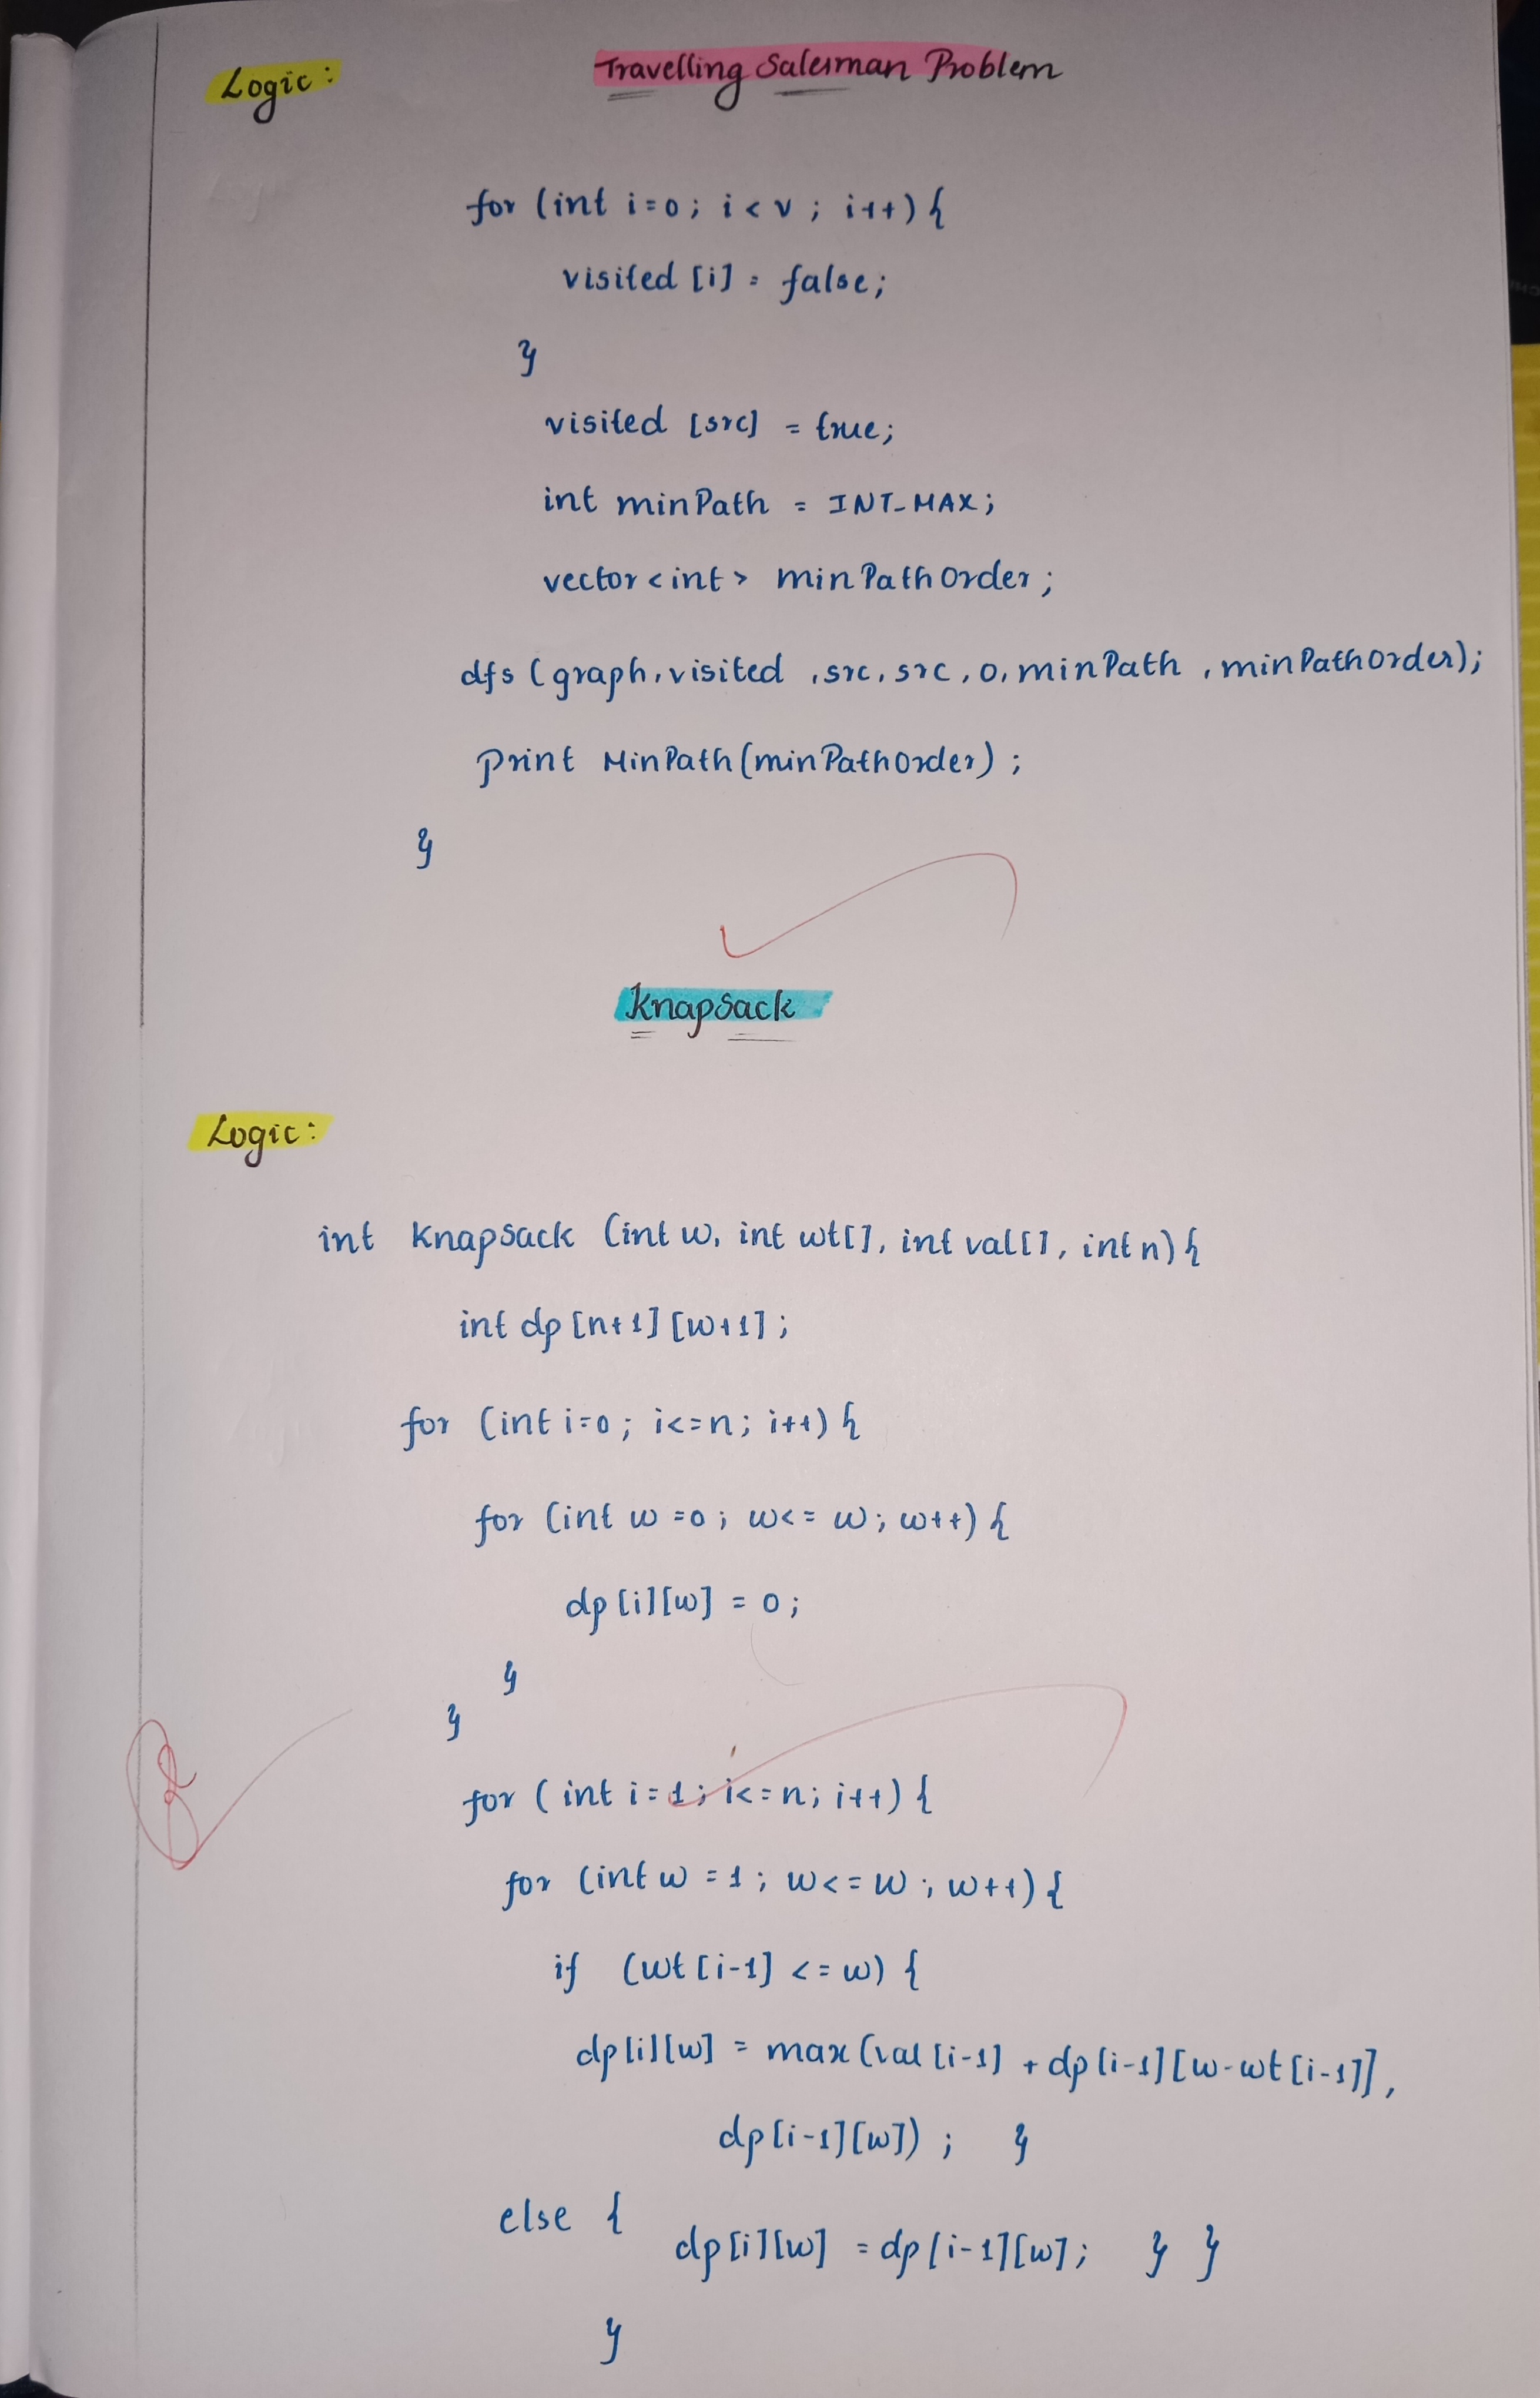 Logic:
Travelling Salesman Problem
for (int i=0; i<v; i++) {
visited [i] = false;
}
visited [src] = true;
int minPath = INT_MAX;
vector<int> minPathOrder;
dfs (graph, visited, src, src, 0, minPath, minPathOrder);
print MinPath(minPathOrder);
}
Knapsack
Logic:
int Knapsack (int w, int wt[], int val[], int n) {
int dp [n+1] [w+1];
for (int i=0; i<=n; i++) {
for (int w=0; w<=w; w++) {
dp [i][w] = 0;
}
}
for (int i=1; i<=n; i++) {
for (int w=1; w<=W; w++) {
if (wt [i-1] <= w) {
dp[i][w] = max (val [i-1] + dp [i-1] [w-wt [i-1]],
dp [i-1][w]); }
else {
dp [i][w] = dp [i-1][w]; } }
}